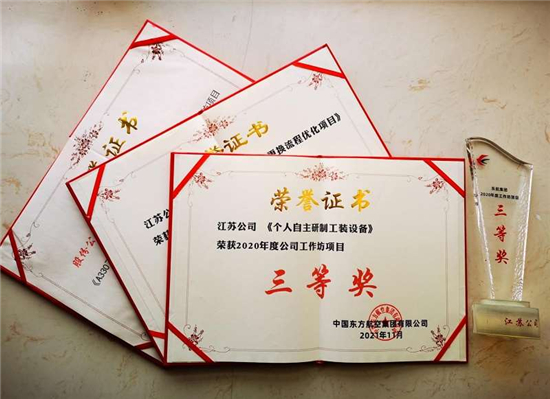 荣誉证书
江苏公司 《个人自主研制工装设备》
荣获2020年度公司工作坊项目
三等奖
中国东方航空集团有限公司
2021年11月
荣誉证书
江苏公司
更换流程优化项目》
荣获
荣誉证书
项目
《A330
东航集团
三等奖
江苏公司